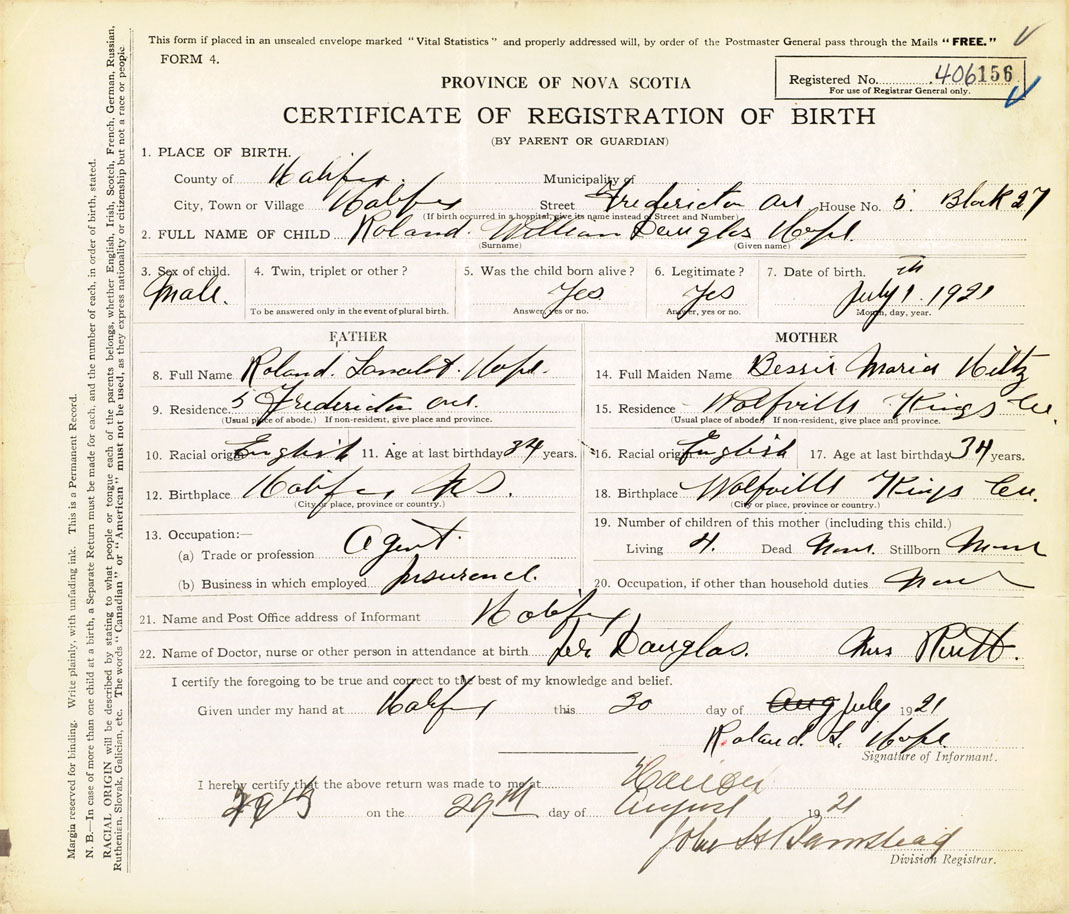 This form if placed in an unsealed envelope marked "Vital Statistics" and properly addressed will, by order of the Postmaster General pass through the Mails "FREE."
FORM 4.
Registered No. 406156
For use of Registrar General only.
PROVINCE OF NOVA SCOTIA
CERTIFICATE OF REGISTRATION OF BIRTH
(BY PARENT OR GUARDIAN)
1. PLACE OF BIRTH.
County of Halifax Municipality of
City, Town or Village Halifax Street Fredericton Ave House No. 5. Block 27
(If birth occurred in a hospital, give its name instead of Street and Number)
2. FULL NAME OF CHILD Roland William Douglas Hope.
(Surname) (Given name)
3. Sex of child. 4. Twin, triplet or other? 5. Was the child born alive? 6. Legitimate? 7. Date of birth.
Male. Yes Yes July 1th. 1921
To be answered only in the event of plural birth. Answer, yes or no. Answer, yes or no. Month, day, year.
FATHER
8. Full Name Roland. Lancelot. Hope.
9. Residence 5 Fredericton Ave.
(Usual place of abode.) If non-resident, give place and province.
10. Racial origin English 11. Age at last birthday 34 years.
12. Birthplace Halifax NS.
(City or place, province or country.)
13. Occupation:—
(a) Trade or profession Agent.
(b) Business in which employed Insurance.
MOTHER
14. Full Maiden Name Bessie Maria Hiltz
15. Residence Wolfville Kings Co.
(Usual place of abode.) If non-resident, give place and province.
16. Racial origin English 17. Age at last birthday 34 years.
18. Birthplace Wolfville Kings Co.
(City or place, province or country.)
19. Number of children of this mother (including this child.)
Living 4. Dead None. Stillborn None
20. Occupation, if other than household duties None
21. Name and Post Office address of Informant Halifax
22. Name of Doctor, nurse or other person in attendance at birth Dr Douglas. Mrs
I certify the foregoing to be true and correct to the best of my knowledge and belief.
Given under my hand at Halifax this 30 day of Aug July 1921
Roland. L. Hope.
Signature of Informant.
I hereby certify that the above return was made to me at Halifax
on the 29th day of August 1921
John
Division Registrar.
Margin reserved for binding. Write plainly, with unfading ink. This is a Permanent Record.
N. B.—In case of more than one child at a birth, a Separate Return must be made for each, and the number of each, in order of birth, stated.
RACIAL ORIGIN will be described by stating to what people or tongue each of the parents belongs, whether English, Irish, Scotch, French, German, Russian,
Ruthenian, Slovak, Galician, etc. The words "Canadian" or "American" must not be used, as they express nationality or citizenship but not a race or people